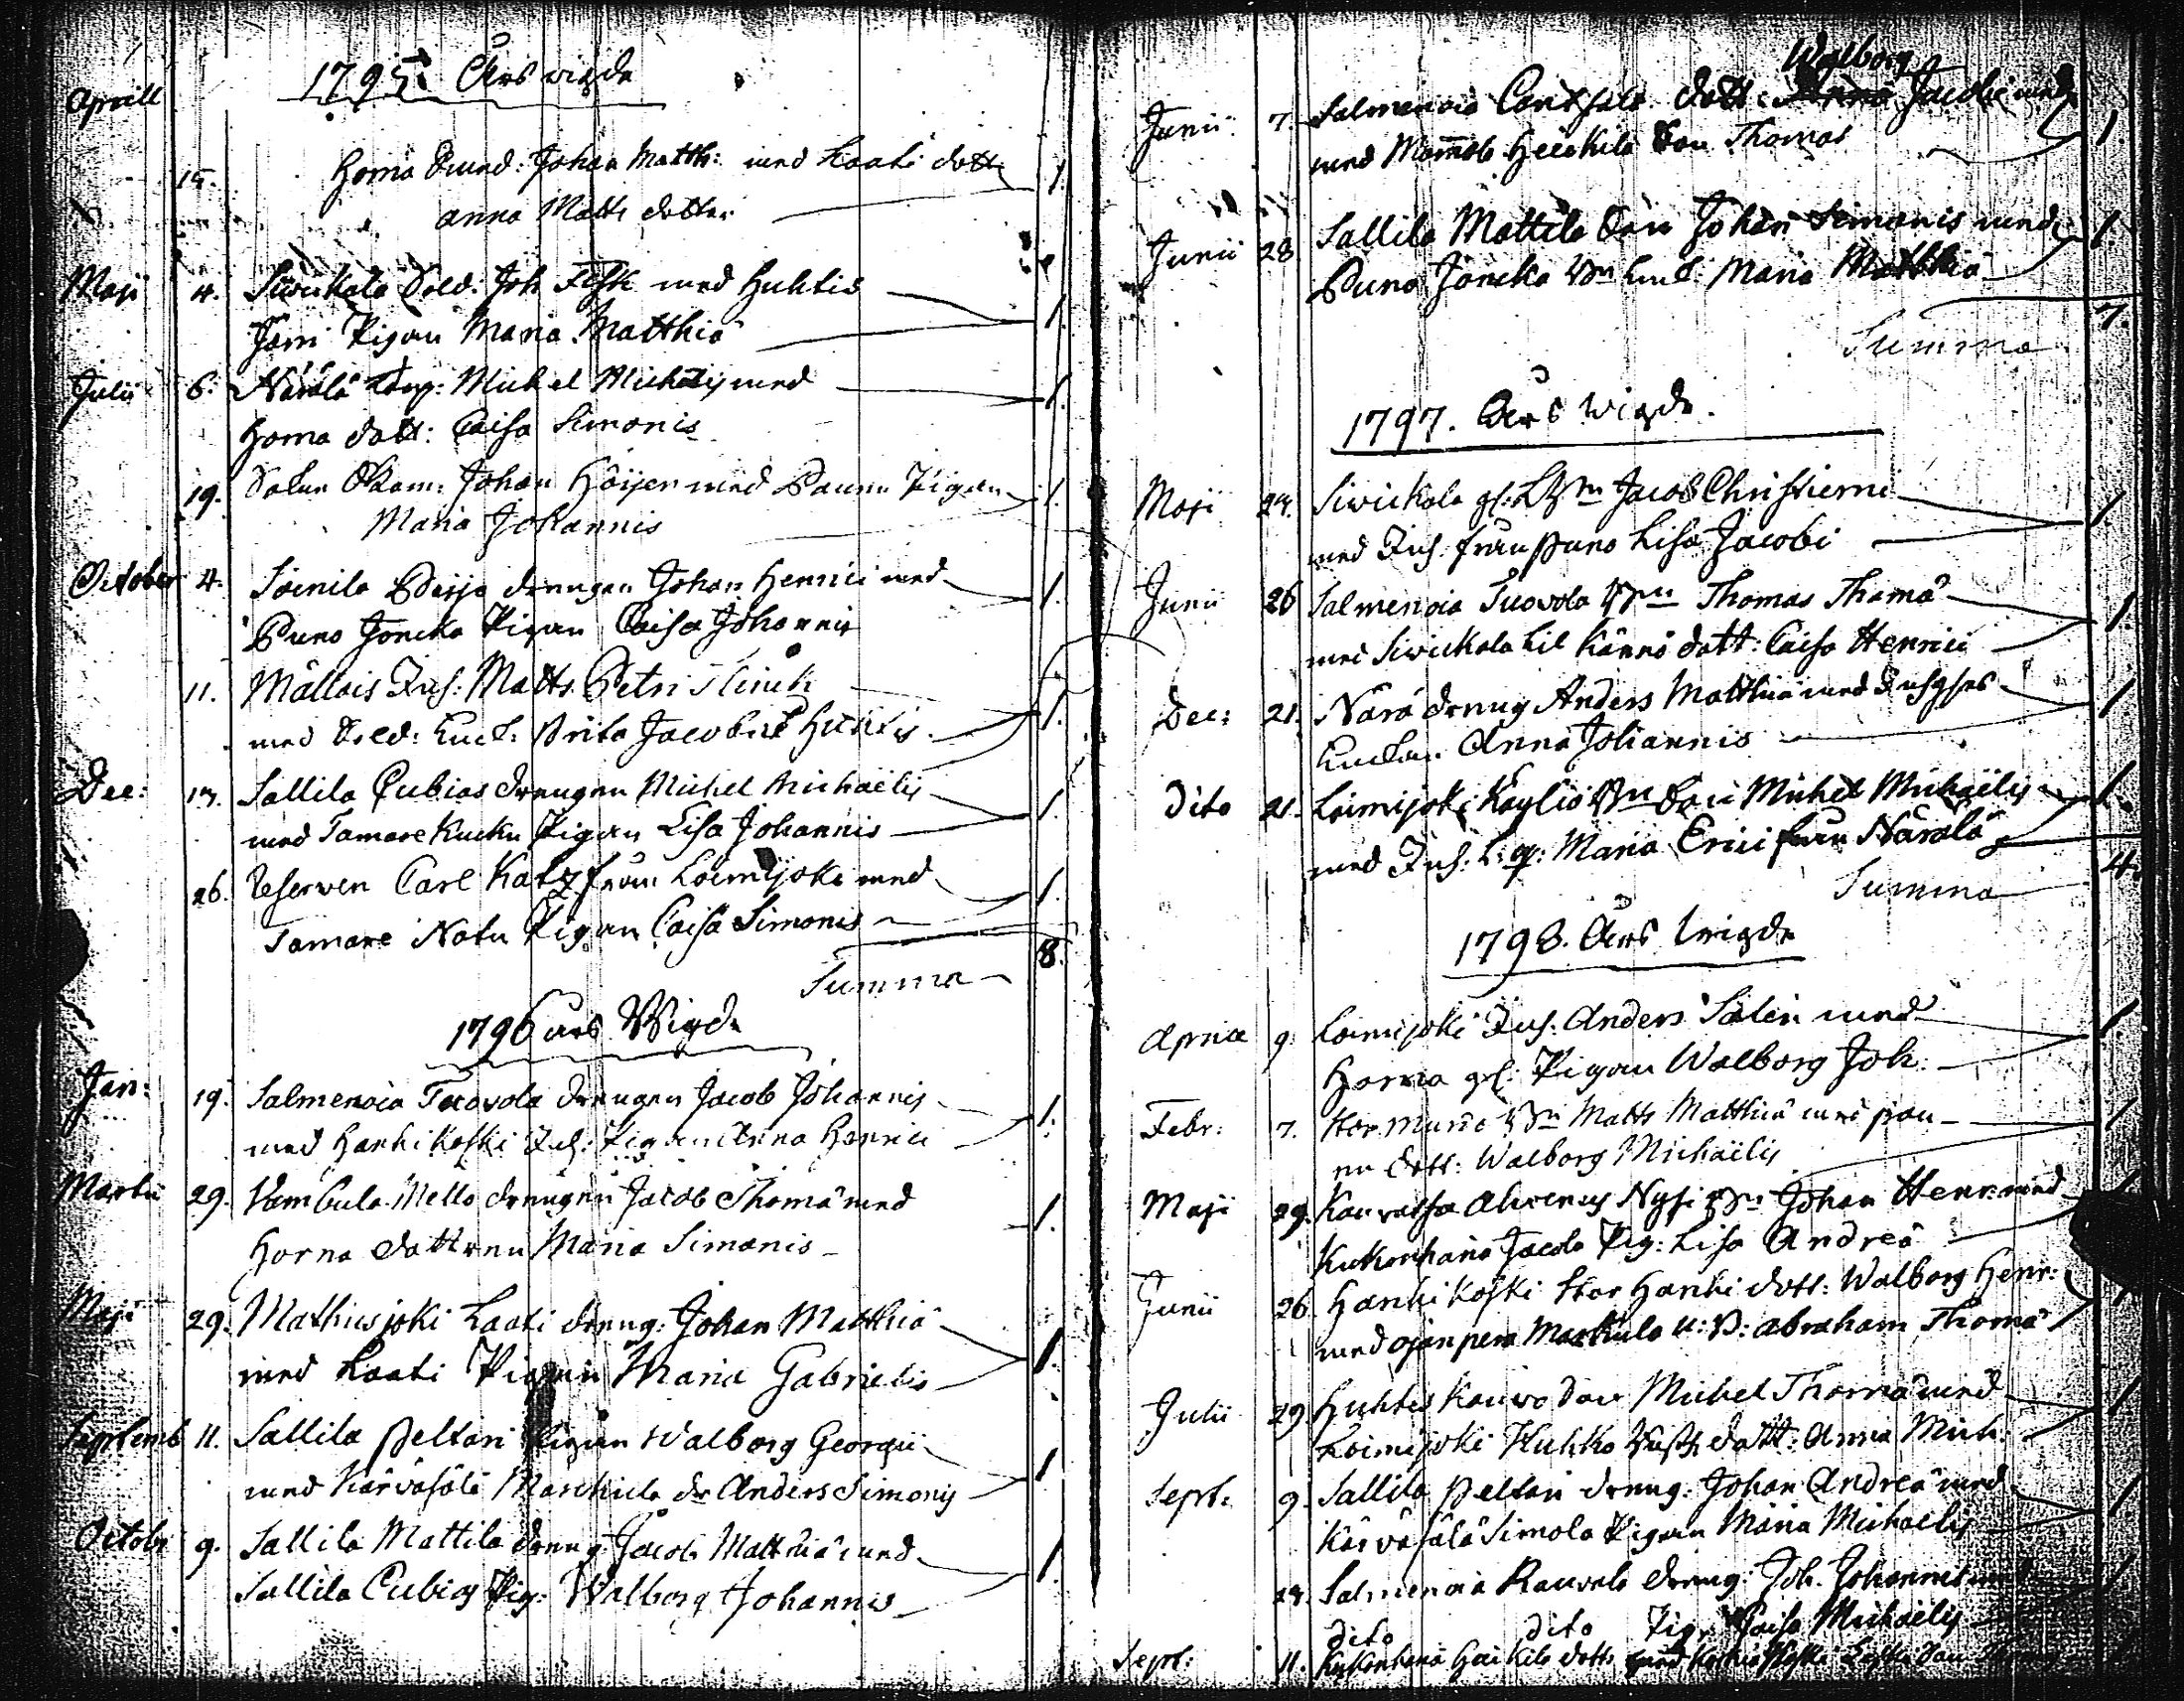 1795. Års wigde
Aprill
15. Horna Johan Matth: med Laati dott:
Anna Matts dotter 1.
Maji 4. Siwickala Sold: Joh Fisk med Huhtis 1.
Jari Pigan Maria Matthiä
Julii 6. Närälä Michel Michelij med 1.
Horna dott: Caisa Simonis
19. Johan Höijer med Paunu Pigan 1.
Maria Johannis
October 4. drengen Johan Henrici med 1.
Puno Joncka Pigan Caisa Johannis
11. Mällais Inh: Matts Petri
med Sold: Enck: Brita Jacobi Huhtis 1.
Dec: 13. Sallila Cubias drengen Michel Michaëlis
med Tamare Kucku Pigan Lisa Johannis 1.
26. Reserven Carl Katz från Loimijoki med 1.
Tamare Notu Pigan Caisa Simonis
Summa 8.
1796 års Wigde
Jan: 19. Salmenoia Tuovola drengen Jacob Johannis
med Hanhikoski Inh: Pigan Anna Henrici 1.
Martii 29. Vambula Mello drengen Jacob Thomä med
Horna dottren Maria Simonis 1.
Maji 29. Mathiesjoki Laati dreng: Johan Matthiä
med Laati Pigan Maria Gabrielis 1.
Septemb 11. Sallila Peltari Pigan Walborg Georgii
med Kärväsälä Marckula dr Anders Simonis 1
Octobr 9. Sallila Mattila dreng: Jacob Matthiä med
Sallila Cubias Pig: Walborg Johannis 1.
Walborg
Junii 7. Salmenoia dott: Jacobi
med Heickilä Son Thomas 1.
Junii 28 Sallila Mattila Son Johan Simonis med 1.
Puno Joncka Enck: Maria Matthiä
Summa 7.
1797. Års Wigde.
Maji 24. Siwickala Jacob Christierni
med Inh. från Puno Lisa Jacobi 1.
Junii 26 Salmenoia Tuovola Thomas Thomä
med Siwickala Lill Kännö dott: Caisa Henrici 1.
Dec: 21. Närä dreng Anders Matthiä med Inhyses 1
Enckan Anna Johannis
Dito 21. Loimijoki Köyliö Son Michel Michaëlis 1.
med Inh: Maria Erici från Närälä
Summa 4.
1798. Års Wigde
Aprill 9. Loimijoki Inh: Anders Salin med
Horna Pigan Walborg Joh: 1
Febr: 7. Matts Matthiä med Pau- 1
nu dott: Walborg Michaëlis
Maji 29. Nysi Johan Henr: med
Kuckonharia Jacola Pig: Lisa Andreä
Junii 26. Hanhikoski Stor Hanhi dott: Walborg Henr:
med Ojanperä Markula Abraham Thomä
Julii 29. Huhtis Kauvo Son Michel Thomä med
Loimijoki Huhko dott: Anna Mich:
Sept: 9. Sallila Peltari dreng: Johan Andreä med
Kärväsälä Simola Pigan Maria Michaelis
24. Salmenoia Rauvola dreng: Joh. Johannis med
dito dito Pig: Caisa Michaelis
Sept: 11. Kuckonharia Heickilä dott: